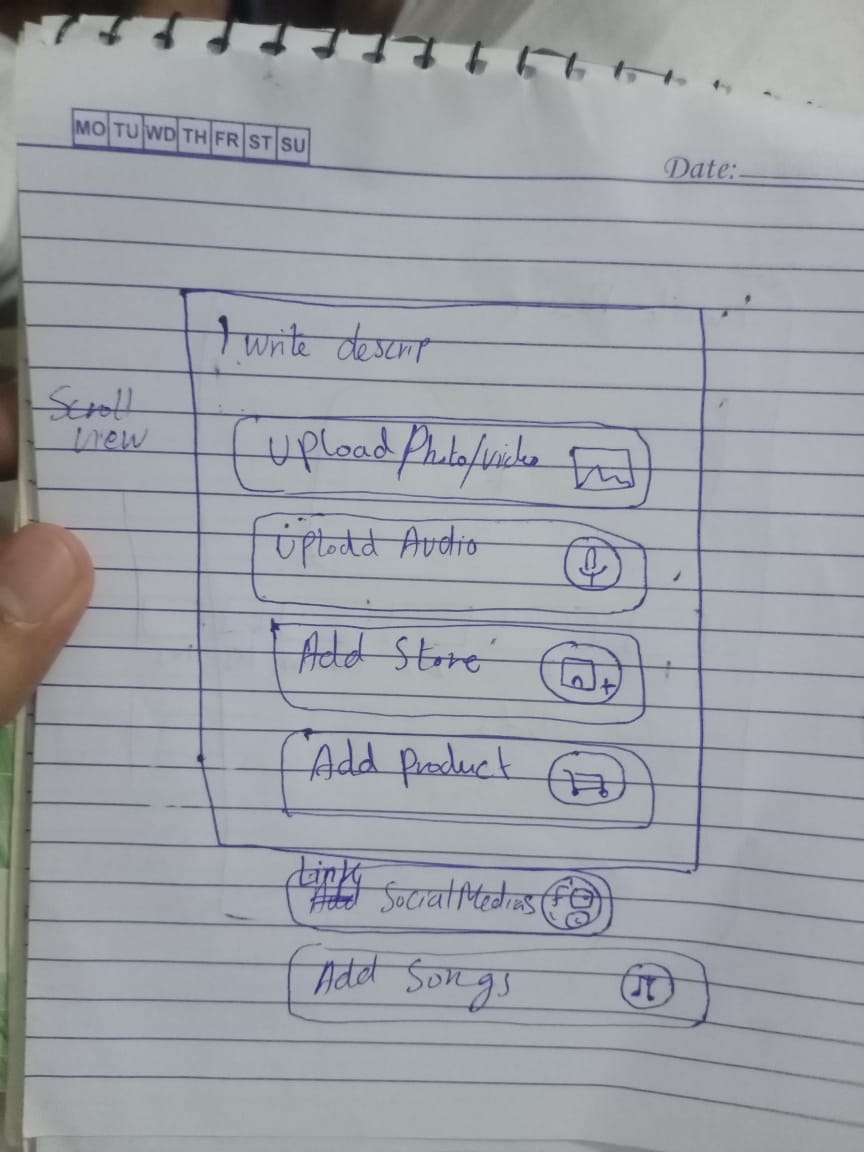 MO TU WD TH FR ST SU
Date:
write descrip
Scroll
view
Upload Photo/video
Uplodd Audio
Add Store
Add product
Link
Add SocialMedias
Add Songs